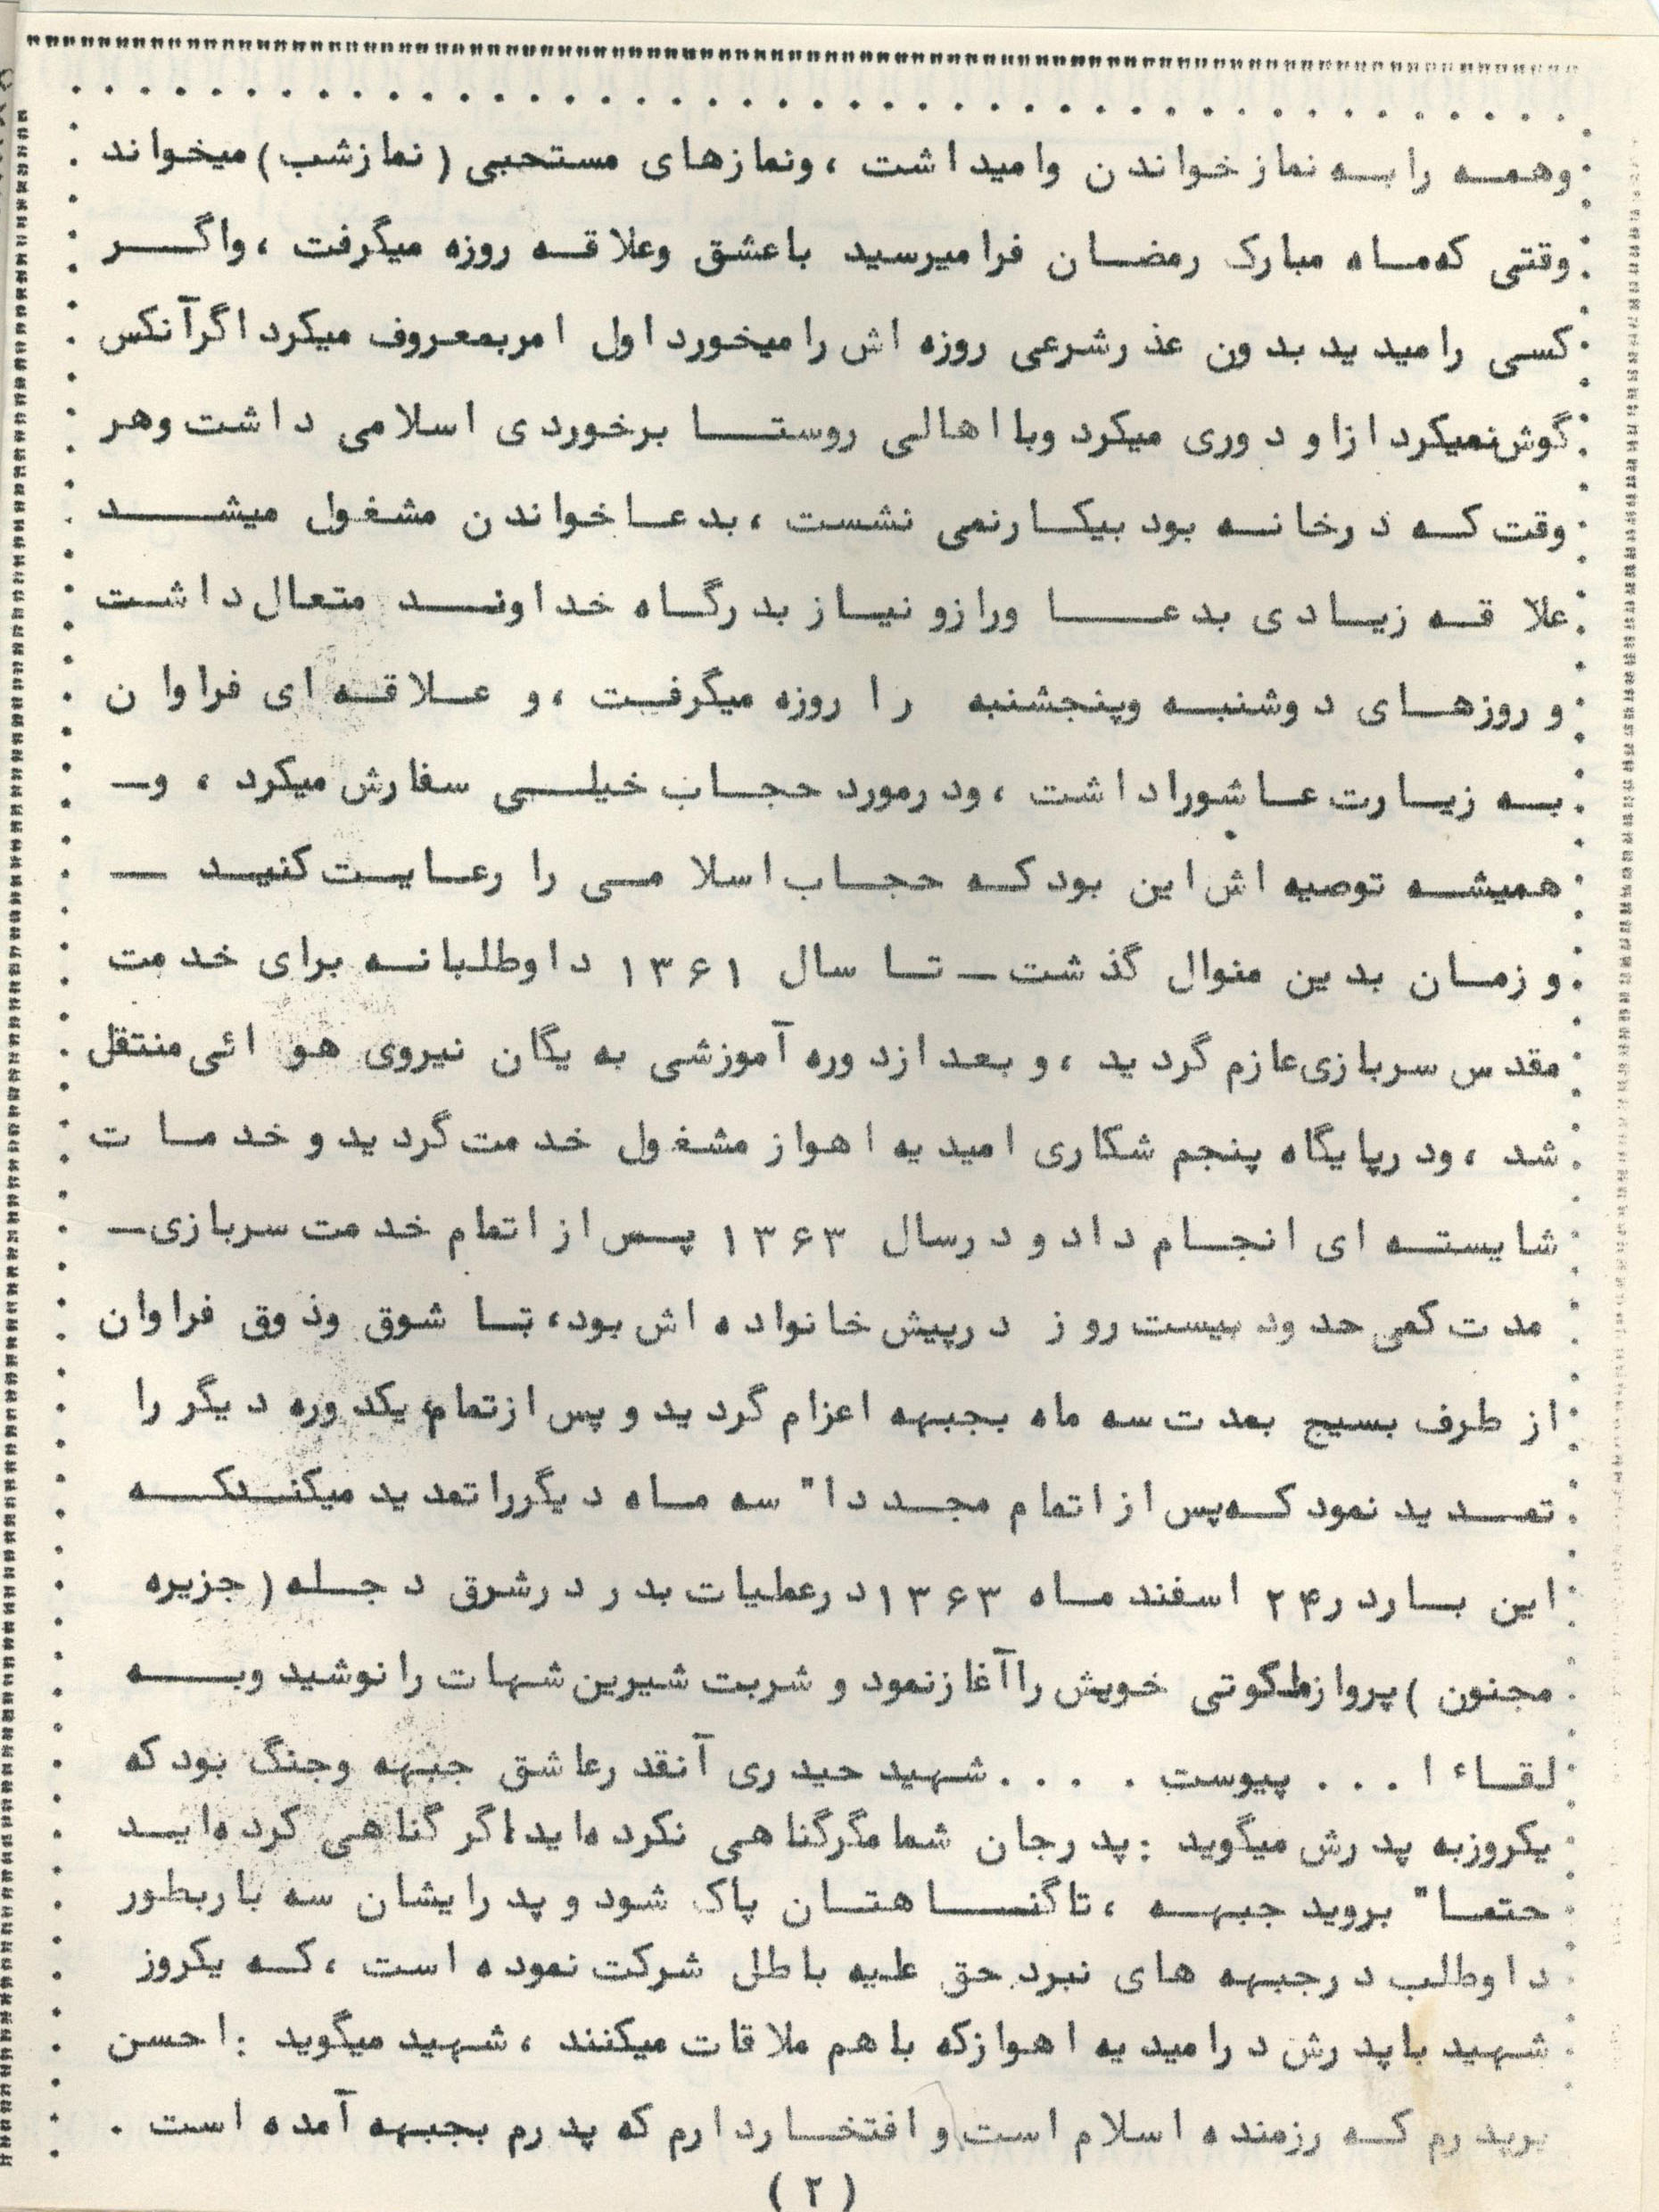 وهمه را به نماز خواندن وامیداشت ، ونمازهای مستحبی ( نمازشب ) میخواند
وقتی که ماه مبارک رمضان فرا میرسید باعشق وعلاقه روزه میگرفت ، واگر
کسی را میدید بدون عذرشرعی روزه اش را میخورد اول امربمعروف میکرد اگرآنکس
گوش نمیکرد ازاو دوری میکرد وبا اهالی روستا برخوردی اسلامی داشت وهر
وقت که درخانه بود بیکارنمی نشست ، بدعا خواندن مشغول میشد
علاقه زیادی بدعا ورازو نیاز بدرگاه خداوند متعال داشت
و روزهای دوشنبه وپنجشنبه را روزه میگرفت ، و علاقه ای فراوان
به زیارت عاشورا داشت ، ودرمورد حجاب خیلی سفارش میکرد ، و_
همیشه توصیه اش این بود که حجاب اسلامی را رعایت کنید _
و زمان بدین منوال گذشت _ تا سال ۱۳۶۱ داوطلبانه برای خدمت
مقدس سربازی عازم گردید ، و بعد ازدوره آموزشی به یگان نیروی هوائی منتقل
شد ، ودرپایگاه پنجم شکاری امیدیه اهواز مشغول خدمت گردید و خدمات
شایسته ای انجام داد و درسال ۱۳۶۳ پس از اتمام خدمت سربازی _
مدت کمی حدود بیست روز درپیش خانواده اش بود، تا شوق وذوق فراوان
از طرف بسیج بمدت سه ماه بجبهه اعزام گردید و پس ازتمام یکدوره دیگر را
تمدید نمود که پس از اتمام مجددا" سه ماه دیگرراتمدید میکند که
این باردر ۲۴ اسفند ماه ۱۳۶۳ درعملیات بدر درشرق دجله ( جزیره
مجنون ) پروازملکوتی خویش راآغازنمود و شربت شیرین شهات را نوشید وبه
لقاء ا . . . پیوست . . . . شهید حیدری آنقدرعاشق جبهه وجنگ بود که
یکروزبه پدرش میگوید : پدرجان شما مگرگناهی نکرده اید اگر گناهی کرده اید
حتما" بروید جبهه ، تاگناهتان پاک شود و پدرایشان سه باربطور
داوطلب درجبهه های نبرد حق علیه باطل شرکت نموده است ، که یکروز
شهید باپدرش درامیدیه اهوازکه باهم ملاقات میکنند ، شهید میگوید : احسن
برپدرم که رزمنده اسلام است و افتخاردارم که پدرم بجبهه آمده است .
( ۲ )